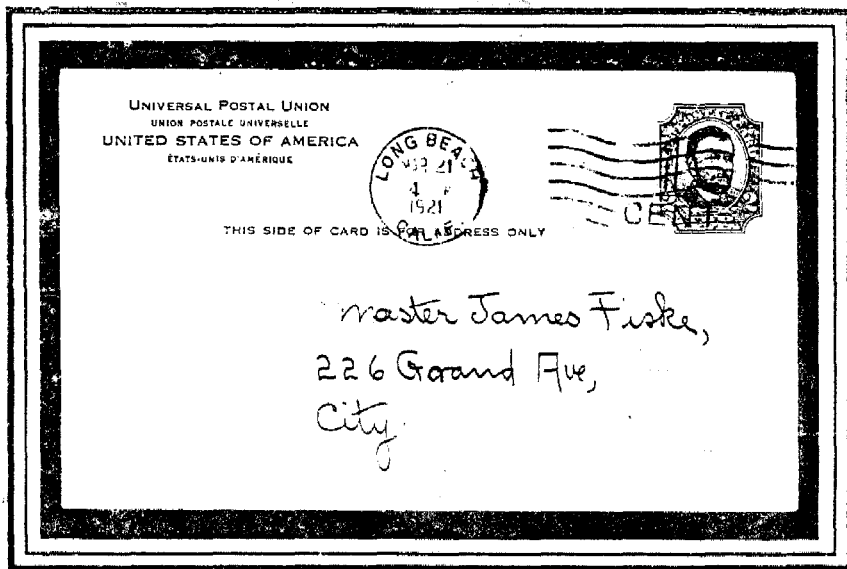 UNIVERSAL POSTAL UNION
UNION POSTALE UNIVERSELLE
UNITED STATES OF AMERICA
ÉTATS-UNIS D'AMÉRIQUE
LONG BEACH
MAR 21
4 P
1921
CALIF.
CENT
THIS SIDE OF CARD IS FOR ADDRESS ONLY
Master James Fiske,
226 Grand Ave,
City